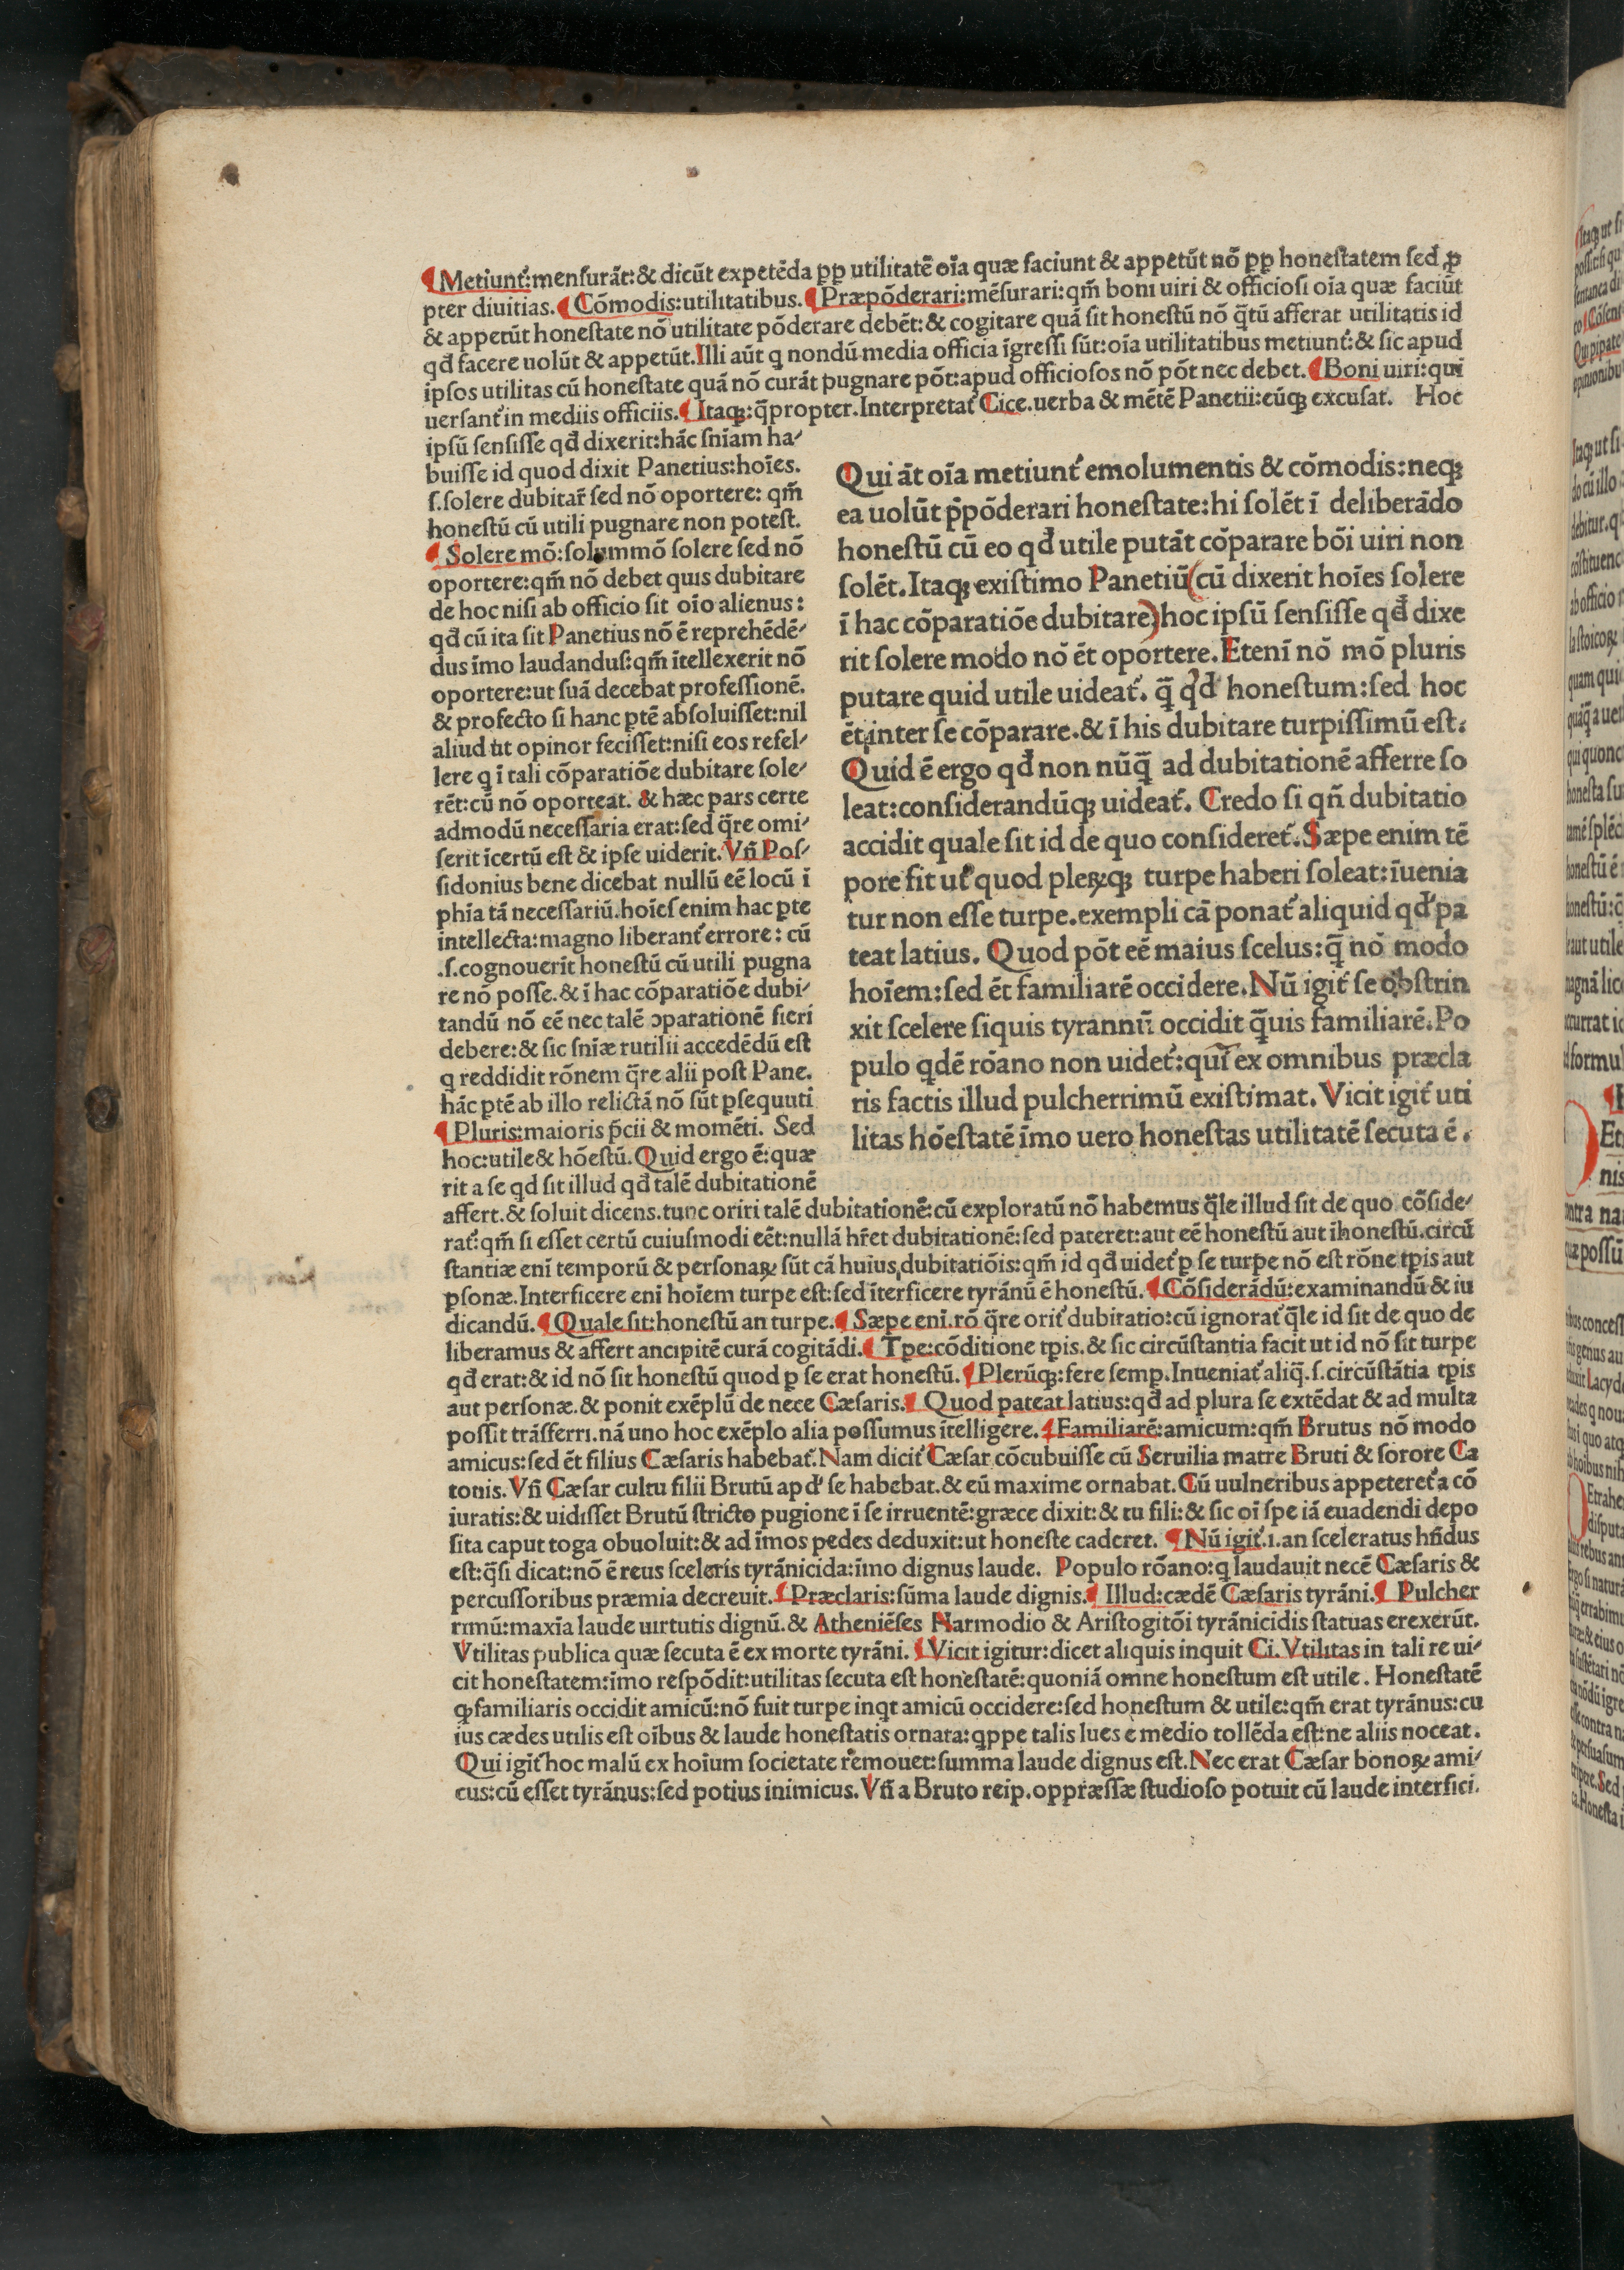 ¶Metiunt᷑:mensurāt:& dicūt expetēda ꝓp utilitatē oīa quæ faciunt & appetūt nō ꝓp honeſtatem ſed ꝓ
pter diuitias.¶Cōmodis:utilitatibus.¶Præpōderari:mēſurari:qm̄ boni uiri & officioſi oīa quæ faciūt
& appetūt honeſtate nō utilitate pōderare debēt:& cogitare quā ſit honeſtū nō q̄tū afferat utilitatis id
qđ facere uolūt & appetūt.Illi aūt q nondū media officia īgreſſi ſūt:oīa utilitatibus metiunt᷑:& ſic apud
ipſos utilitas cū honeſtate quā nō curāt pugnare pōt:apud officioſos nō pōt nec debet.¶Boni uiri:qui
uerſant᷑ in mediis officiis.¶Itaqꝫ:q̄propter.Interpretat᷑ Cice.uerba & mētē Panetii:eūqꝫ excuſat. Hoc
ipſū ſenſiſſe qđ dixerit:hāc ſnīam ha⸗
buiſſe id quod dixit Panetius:hoīes.
ſ.ſolere dubitar̄ ſed nō oportere: qm̄
honeſtū cū utili pugnare non poteſt.
¶Solere mō:ſolummō ſolere ſed nō
oportere:qm̄ nō debet quis dubitare
de hoc niſi ab officio ſit oīo alienus:
qđ cū ita ſit Panetius nō ē reprehēdē⸗
dus īmo laudanduſ:qm̄ ītellexerit nō
oportere:ut ſuā decebat profeſſionē.
& profecto ſi hanc ꝑtē abſoluiſſet:nil
aliud ut opinor feciſſet:niſi eos refel⸗
lere q ī tali cōparatiōe dubitare ſole⸗
rēt:cū nō oporteat. & hæc pars certe
admodū neceſſaria erat:ſed q̄re omi⸗
ſerit īcertū eſt & ipſe uiderit.Vn̄ Poſ⸗
ſidonius bene dicebat nullū eē locū ī
phīa tā neceſſariū.hoīeſ enim hac ꝑte
intellecta:magno liberant᷑ errore: cū
.ſ.cognouerīt honeſtū cū utili pugna
re nō poſſe.& ī hac cōparatiōe dubi⸗
tandū nō eē nec talē ꝯparationē fieri
debere:& ſic ſnīæ rutilii accedēdū eſt
q reddidit rōnem q̄re alii poſt Pane.
hāc ptē ab illo relictā nō ſūt ꝑſequuti
¶Pluris:maioris p̄cii & momēti. Sed
hoc:utile & hōeſtū.Quid ergo ē:quæ
rit a ſe qd ſit illud qđ talē dubitationē
Qui āt oīa metiunt᷑ emolumentis & cōmodis:neqꝫ
ea uolūt p̄pōderari honeſtate:hi ſolēt ī deliberādo
honeſtū cū eo qđ utile putāt cōparare bōi uiri non
ſolēt.Itaqꝫ exiſtimo Panetiū(cū dixerit hoīes ſolere
ī hac cōparatiōe dubitare)hoc ipſū ſenſiſſe qđ dixe
rit ſolere modo nō ēt oportere.Etenī nō mō pluris
putare quid utile uideat᷑. q̄ qđ honeſtum:ſed hoc
ēt inter ſe cōparare.& ī his dubitare turpiſſimū eſt.
Quid ē ergo qđ non nūq̄ ad dubitationē afferre ſo
leat:conſiderandūqꝫ uideat᷑. Credo ſi qn̄ dubitatio
accidit quale ſit id de quo conſideret᷑.Sæpe enim tē
pore fit ut quod pleꝝqꝫ turpe haberi ſoleat:īuenia
tur non eſſe turpe.exempli cā ponat᷑ aliquid qđ pa
teat latius. Quod pōt eē maius ſcelus:q̄ nō modo
hoīem:ſed ēt familiarē occidere.Nū igit᷑ ſe obſtrin
xit ſcelere ſiquis tyrannū occidit q̄uis familiarē.Po
pulo qdē rōano non uidet᷑:qui ex omnibus præcla
ris factis illud pulcherrimū exiſtimat.Vicit igit᷑ uti
litas hōeſtatē īmo uero honeſtas utilitatē ſecuta ē.
affert.& ſoluit dicens.tunc oriri talē dubitationē:cū exploratū nō habemus q̄le illud ſit de quo cōſide⸗
rat᷑:qm̄ ſi eſſet certū cuiuſmodi eēt:nullā hr̄et dubitationē:ſed pateret:aut eē honeſtū aut īhoneſtū.circū
ſtantiæ enī temporū & perſonaꝝ ſūt cā huius dubitatiōis:qm̄ id qđ uidet᷑ ꝑ ſe turpe nō eſt rōne tꝑis aut
ꝑſonæ.Interficere enī hoīem turpe eſt:ſed īterficere tyrānū ē honeſtū.¶Cōſiderādū:examinandū & iu
dicandū.¶Quale ſit:honeſtū an turpe.¶Sæpe enī.rō q̄re orit᷑ dubitatio:cū ignorat᷑ q̄le id ſit de quo de
liberamus & affert ancipitē curā cogitādi.¶Tꝑe:cōditione tꝑis.& ſic circūſtantia facit ut id nō ſit turpe
qđ erat:& id nō ſit honeſtū quod ꝑ ſe erat honeſtū.¶Plerūqꝫ:fere ſemꝑ.Inueniat᷑ aliq̄.ſ.circūſtātia tꝑis
aut perſonæ.& ponit exēplū de nece Cæſaris.¶Quod pateat latius:qđ ad plura ſe extēdat & ad multa
poſſit trāſferri.nā uno hoc exēplo alia poſſumus ītelligere.¶Familiarē:amicum:qm̄ Brutus nō modo
amicus:ſed ēt filius Cæſaris habebat᷑.Nam dicit᷑ Cæſar cōcubuiſſe cū Seruilia matre Bruti & ſorore Ca
tonis.Vn̄ Cæſar cultu filii Brutū apđ ſe habebat.& eū maxime ornabat.Cū uulneribus appeteret᷑ a cō
iuratis:& uidiſſet Brutū ſtricto pugione ī ſe irruentē:græce dixit:& tu fili:& ſic oī ſpe iā euadendi depo
ſita caput toga obuoluit:& ad īmos pedes deduxit:ut honeſte caderet. ¶Nū igit᷑.i.an ſceleratus hn̄dus
eſt:q̄ſi dicat:nō ē reus ſceleris tyrānicida:īmo dignus laude. Populo rōano:q laudauit necē Cæſaris &
percuſſoribus præmia decreuit.¶Præclaris:ſūma laude dignis.¶Illud:cædē Cæſaris tyrāni.¶Pulcher
rimū:maxīa laude uirtutis dignū.& Atheniēſes Narmodio & Ariſtogitōi tyrānicidis ſtatuas erexerūt.
Vtilitas publica quæ ſecuta ē ex morte tyrāni.¶Vicit igitur:dicet aliquis inquit Ci.Vtilitas in tali re ui⸗
cit honeſtatem:īmo reſpōdit:utilitas ſecuta eſt honeſtatē:quoniā omne honeſtum eſt utile. Honeſtatē
ꝙ familiaris occidit amicū:nō fuit turpe inqt amicū occidere:ſed honeſtum & utile:qm̄ erat tyrānus:cu
ius cædes utilis eſt oībus & laude honeſtatis ornata:qppe talis lues e medio tollēda eſt:ne aliis noceat.
Qui igit᷑ hoc malū ex hoīum ſocietate remouet:ſumma laude dignus eſt.Nec erat Cæſar bonoꝝ ami⸗
cus:cū eſſet tyrānus:ſed potius inimicus.Vn̄ a Bruto reip.oppræſſæ ſtudioſo potuit cū laude interfici.